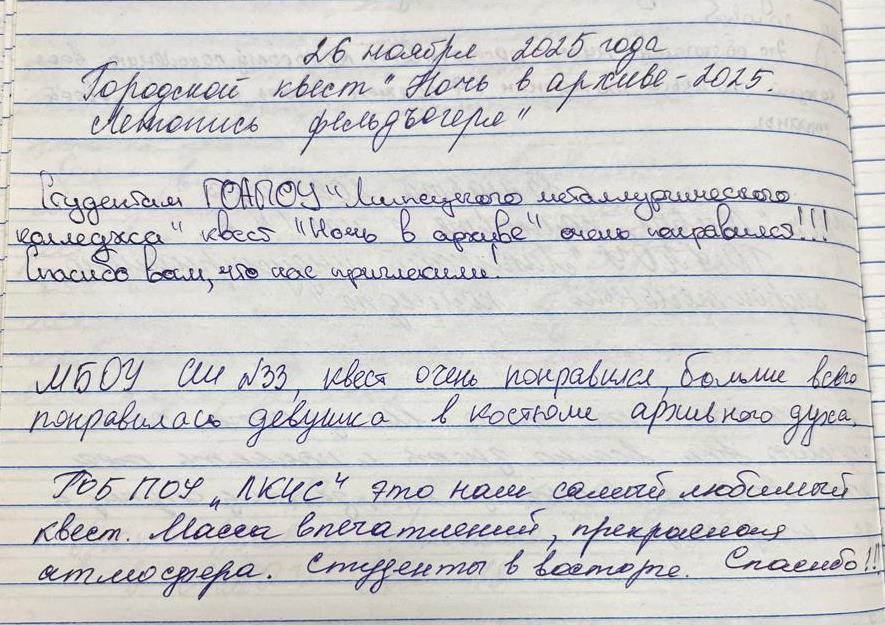 26 ноября 2025 года
Городской квест "Ночь в архиве-2025.
Летопись фельдъегеря"
Студентам ГОАПОУ "Липецкого металлургического
колледжа" квест "Ночь в архиве" очень понравился!!!
Спасибо вам, что нас пригласили!
МБОУ СШ №33, квест очень понравился, больше всего
понравилась девушка в костюме архивного духа.
ГОБ ПОУ "ЛКИС" это наш самый любимый
квест. Масса впечатлений, прекрасная
атмосфера. Студенты в восторге. Спасибо!!